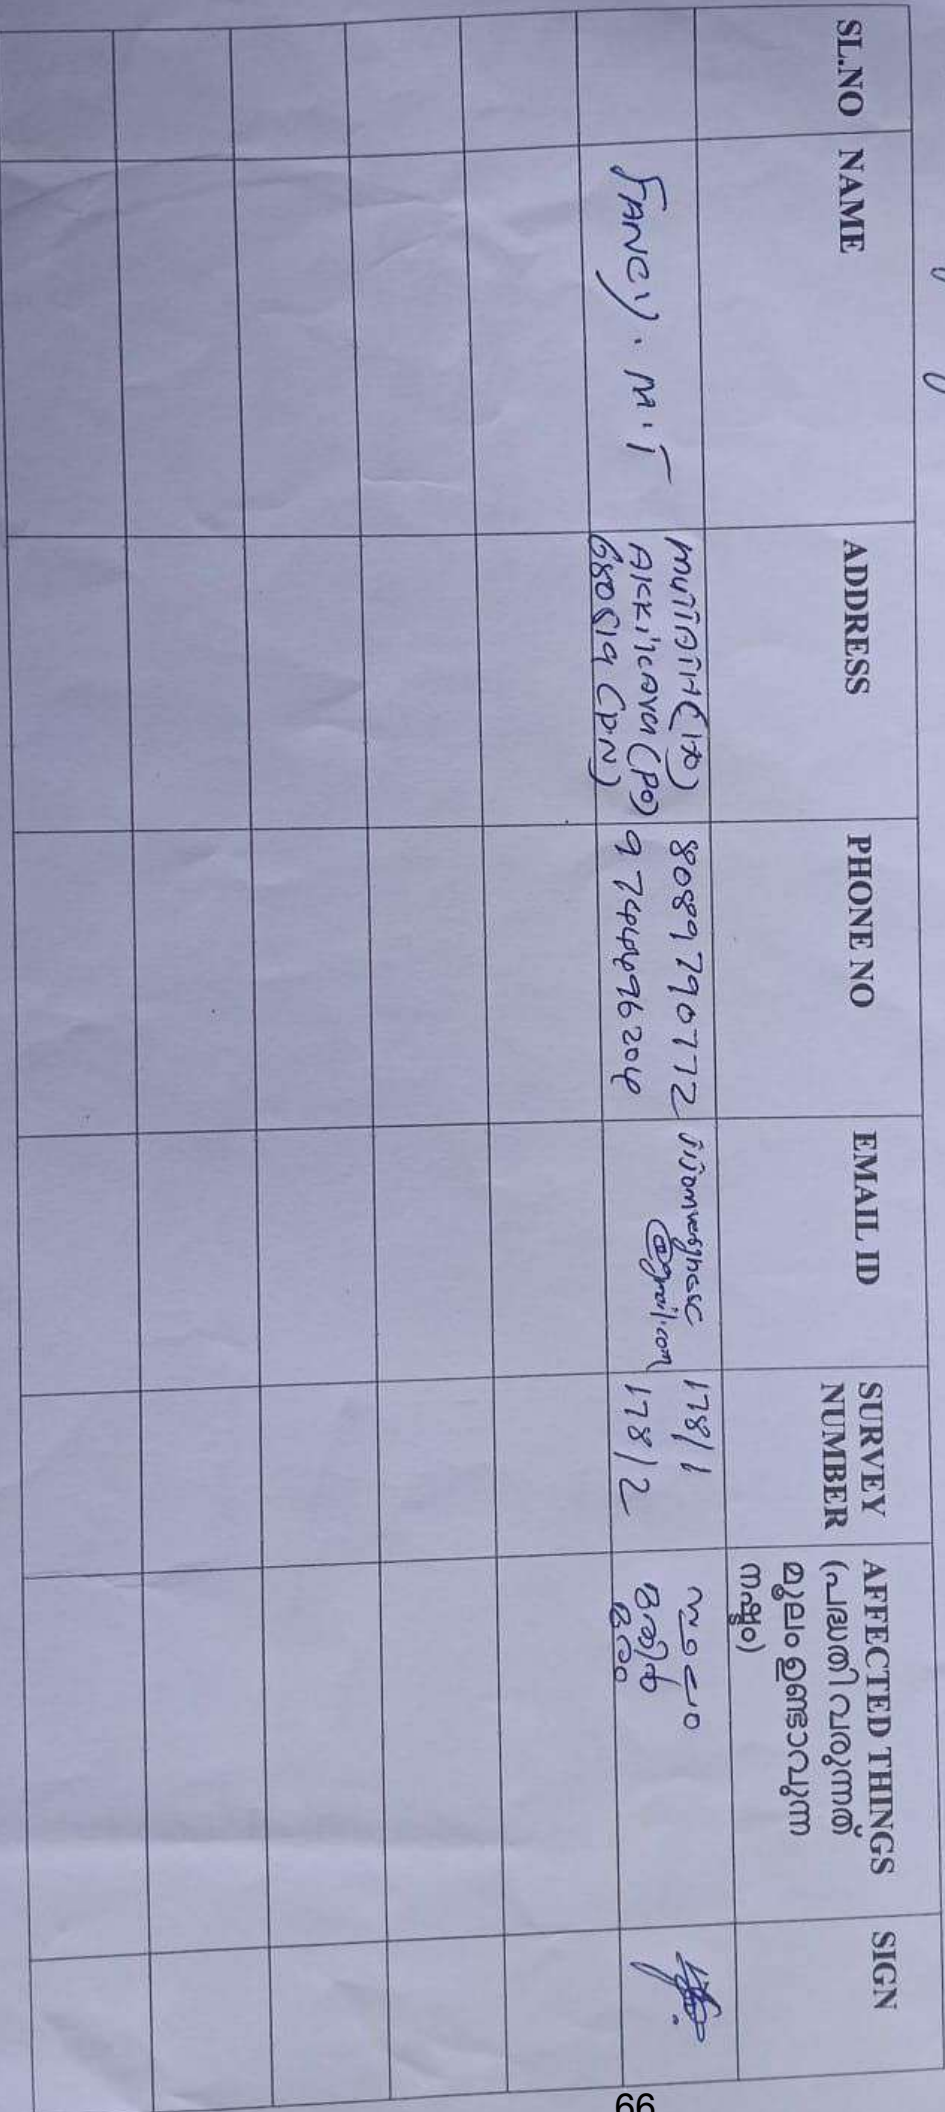 SL.NO NAME ADDRESS PHONE NO EMAIL ID SURVEY NUMBER AFFECTED THINGS
(പദ്ധതി വരുന്നത്
മൂലം ഉണ്ടാവുന്ന
നഷ്ടം)
SIGN
FANCY. M.T
(PO)
680519 (PIN)
8089790772
9744496204
@gmail.com
178/1
178/2
സ്ഥലം
66